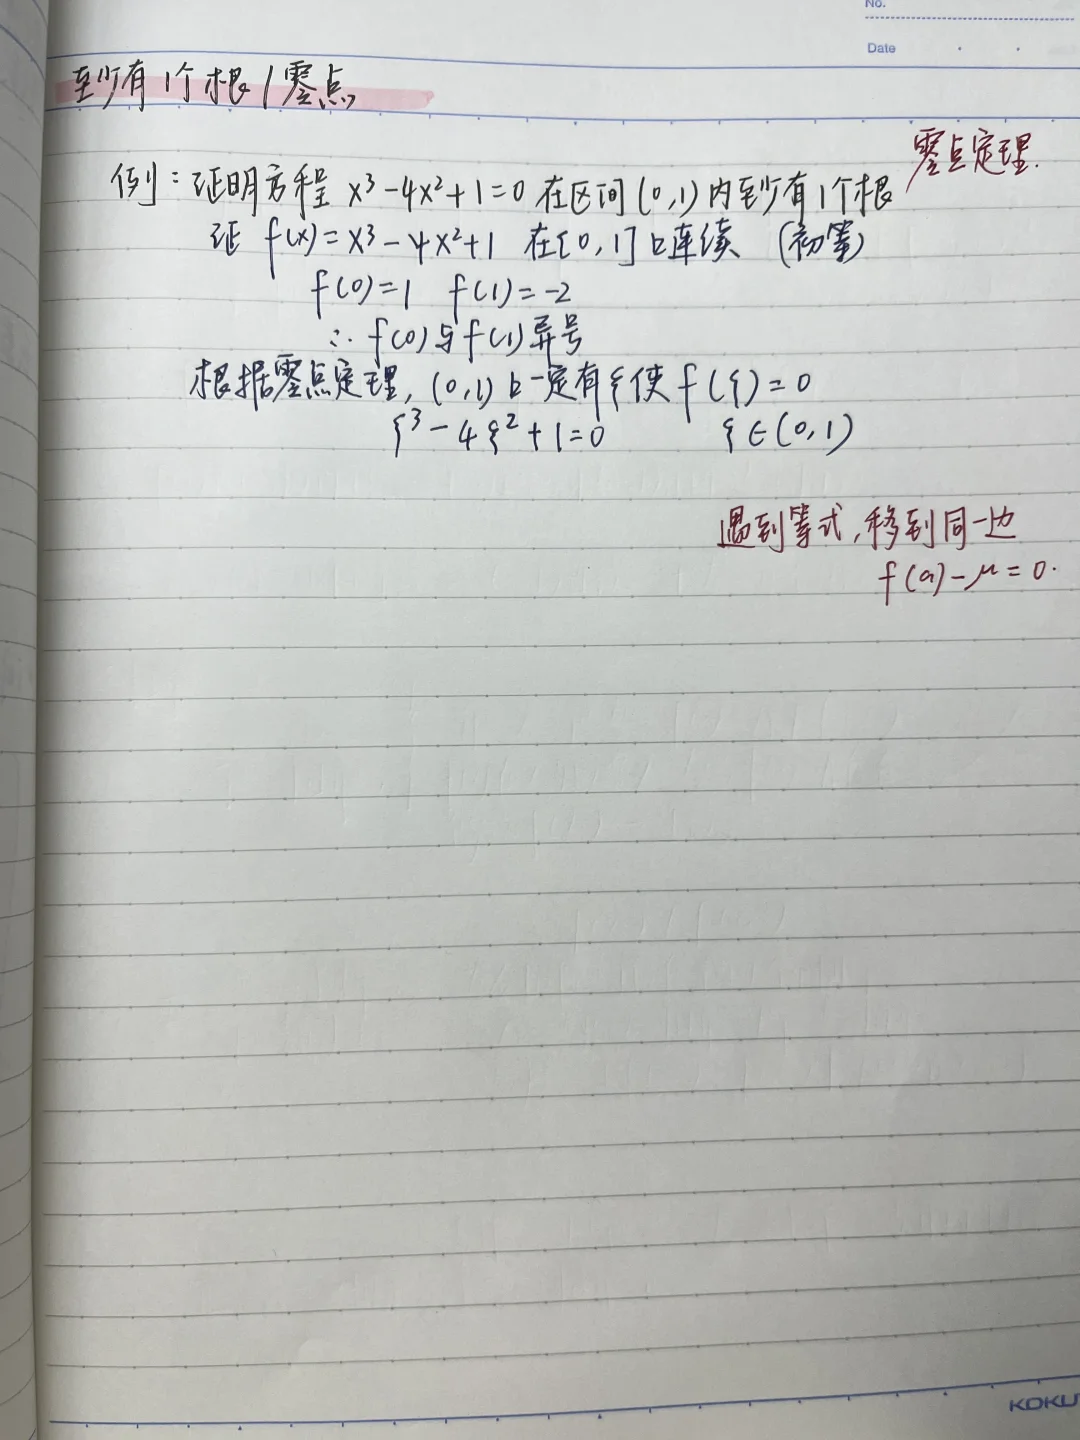 No.
Date
至少有1个根/零点
零点定理.
例：证明方程 x³-4x²+1=0 在区间(0,1)内至少有1个根
证 f(x)=x³-4x²+1 在[0,1]上连续 (初等)
f(0)=1 f(1)=-2
∴ f(0)与f(1)异号
根据零点定理, (0,1)上一定有ξ使f(ξ)=0
ξ³-4ξ²+1=0 ξ∈(0,1)
遇到等式,移到同一边
f(a)-μ=0.
KOKU